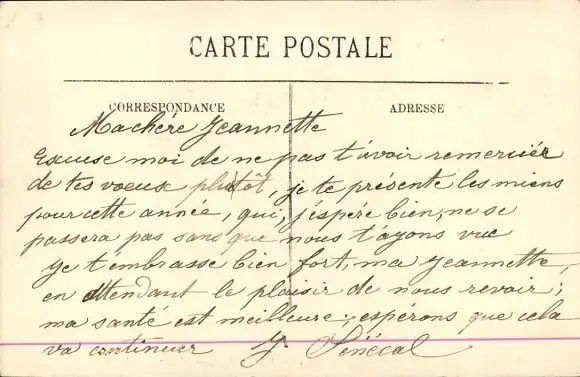 CARTE POSTALE
CORRESPONDANCE
ADRESSE
Ma chére Jeannette
Excuse moi de ne pas t'avoir remerciée
de tes voeux plutôt, je te présente les miens
pour cette année, qui, j'espére bien, ne se
passera pas sans que nous t'ayons vue
Je t'embrasse bien fort, ma Jeannette,
en attendant le plaisir de nous revoir;
ma santé est meilleure; esperons que cela
va continuer Y Sénécal